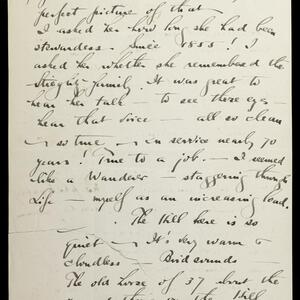 perfect picture of that —
I asked her how long she had been
stewardess. Since 1855! I
asked her whether she remembered the
Stieglitz family. It was great to
hear her talk — to see those eyes —
hear that voice — all so clean
— so true — in service nearly 70
years! True to a job. — I seemed
like a Wanderer — staggering through
Life — myself as an increasing load.
— The Hill here is so
quiet — It's very warm &
cloudless — Bird sounds —
The old horse of 37 about the